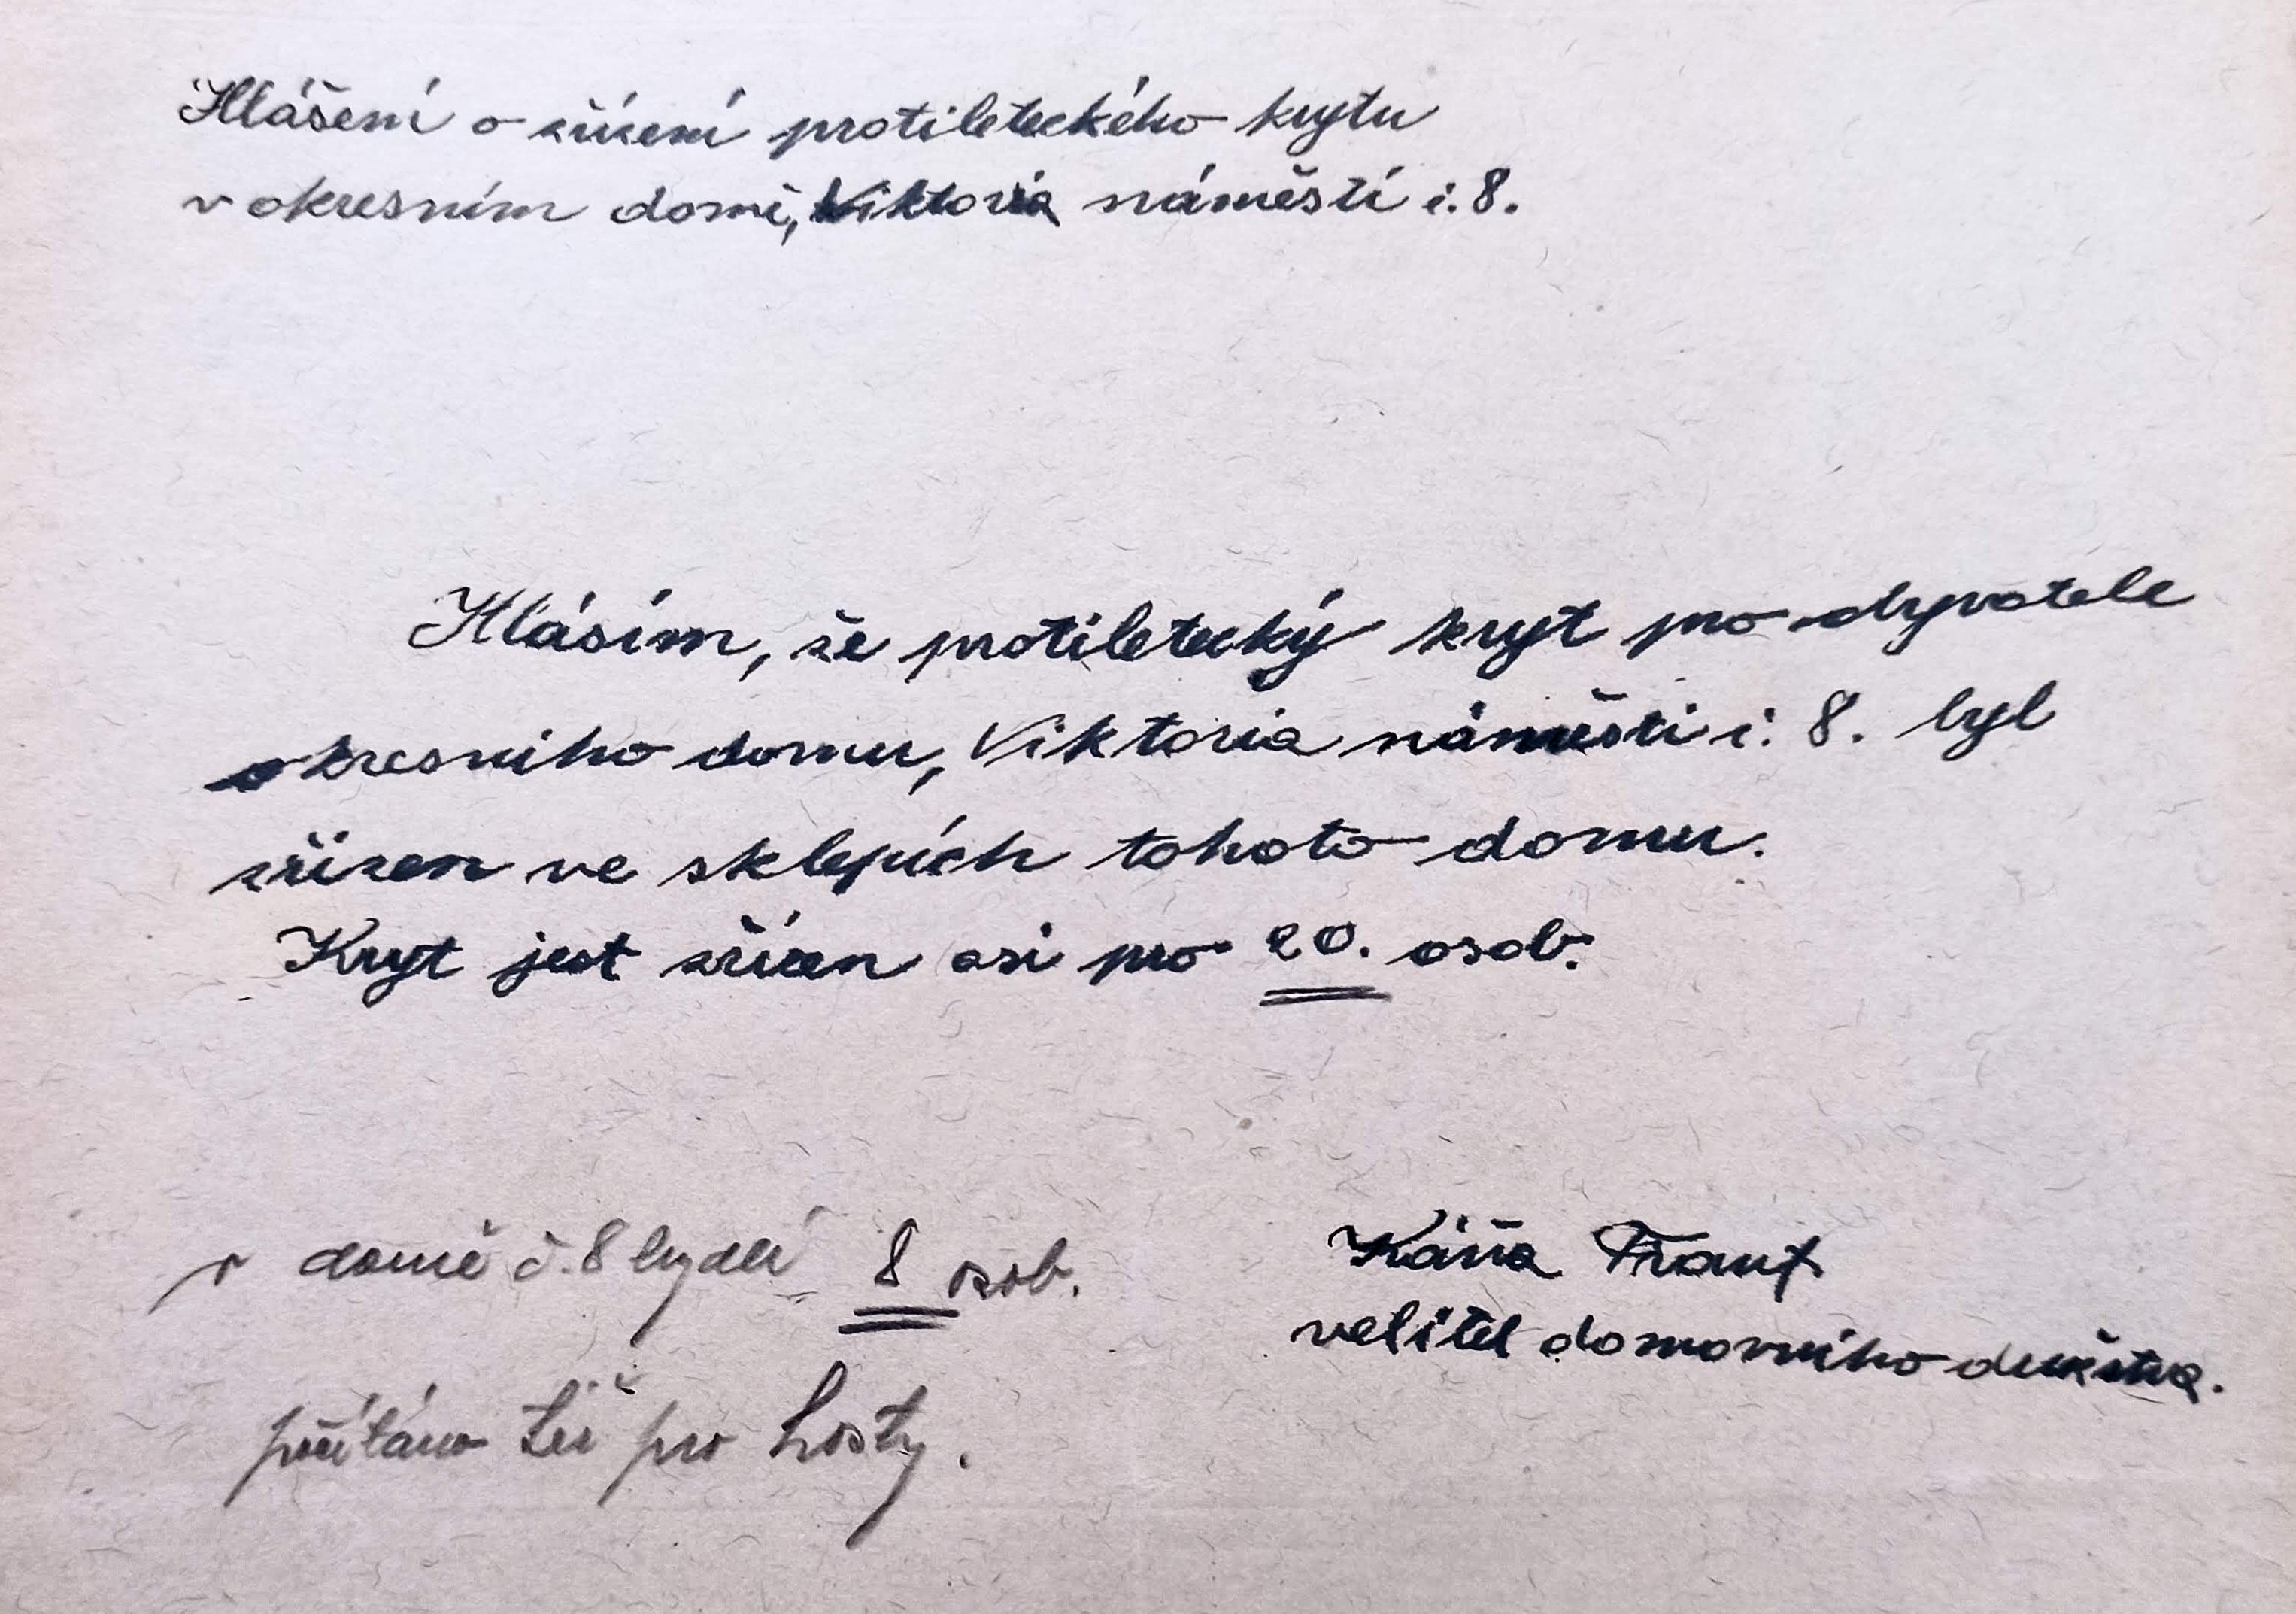 Hlášení o zřízení protileteckého krytu
v okresním domě, Viktoria náměstí č. 8.
Hlásím, že protiletecký kryt pro obyvatele
okresního domu, Viktoria náměstí č. 8. byl
zřízen ve sklepích tohoto domu.
Kryt jest zřízen asi pro 20. osob.
v domě č. 8 bydlí 8 osob.
počítáno též pro hosty.
Káňa Frant
velitel domovního družstva.